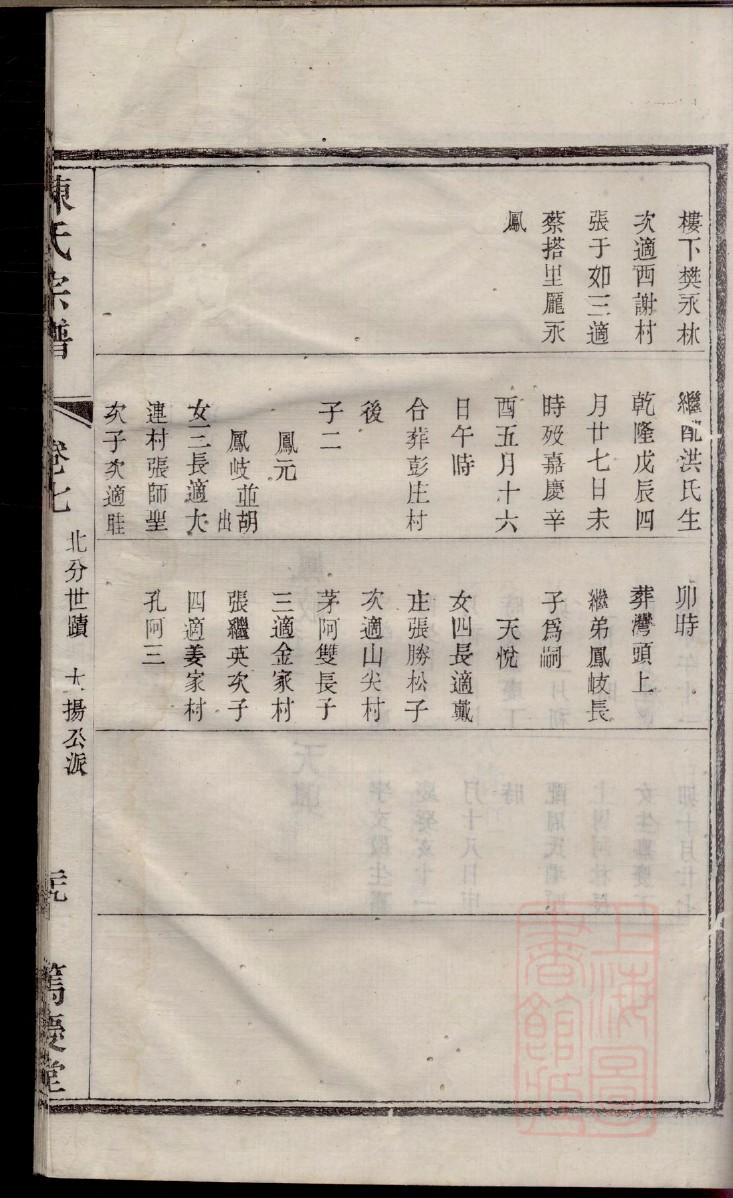 樓下樊永林
次適西謝村
張于如三適
蔡搭里龐永
鳳
繼配洪氏生
乾隆戊辰四
月廿七日未
時歿嘉慶辛
酉五月十六
日午時
合葬彭庄村
後
子二
鳳元
鳳岐並胡出
女三長適大
連村張師聖
次子次適眭
卯時
葬灣頭上
繼弟鳳岐長
子爲嗣
天悅
女四長適戴
庄張勝松子
次適山尖村
茅阿雙長子
三適金家村
張繼英次子
四適姜家村
孔阿三
陳氏宗譜
卷七
北分世蹟 大揚公派
篤慶堂
上海圖書館藏